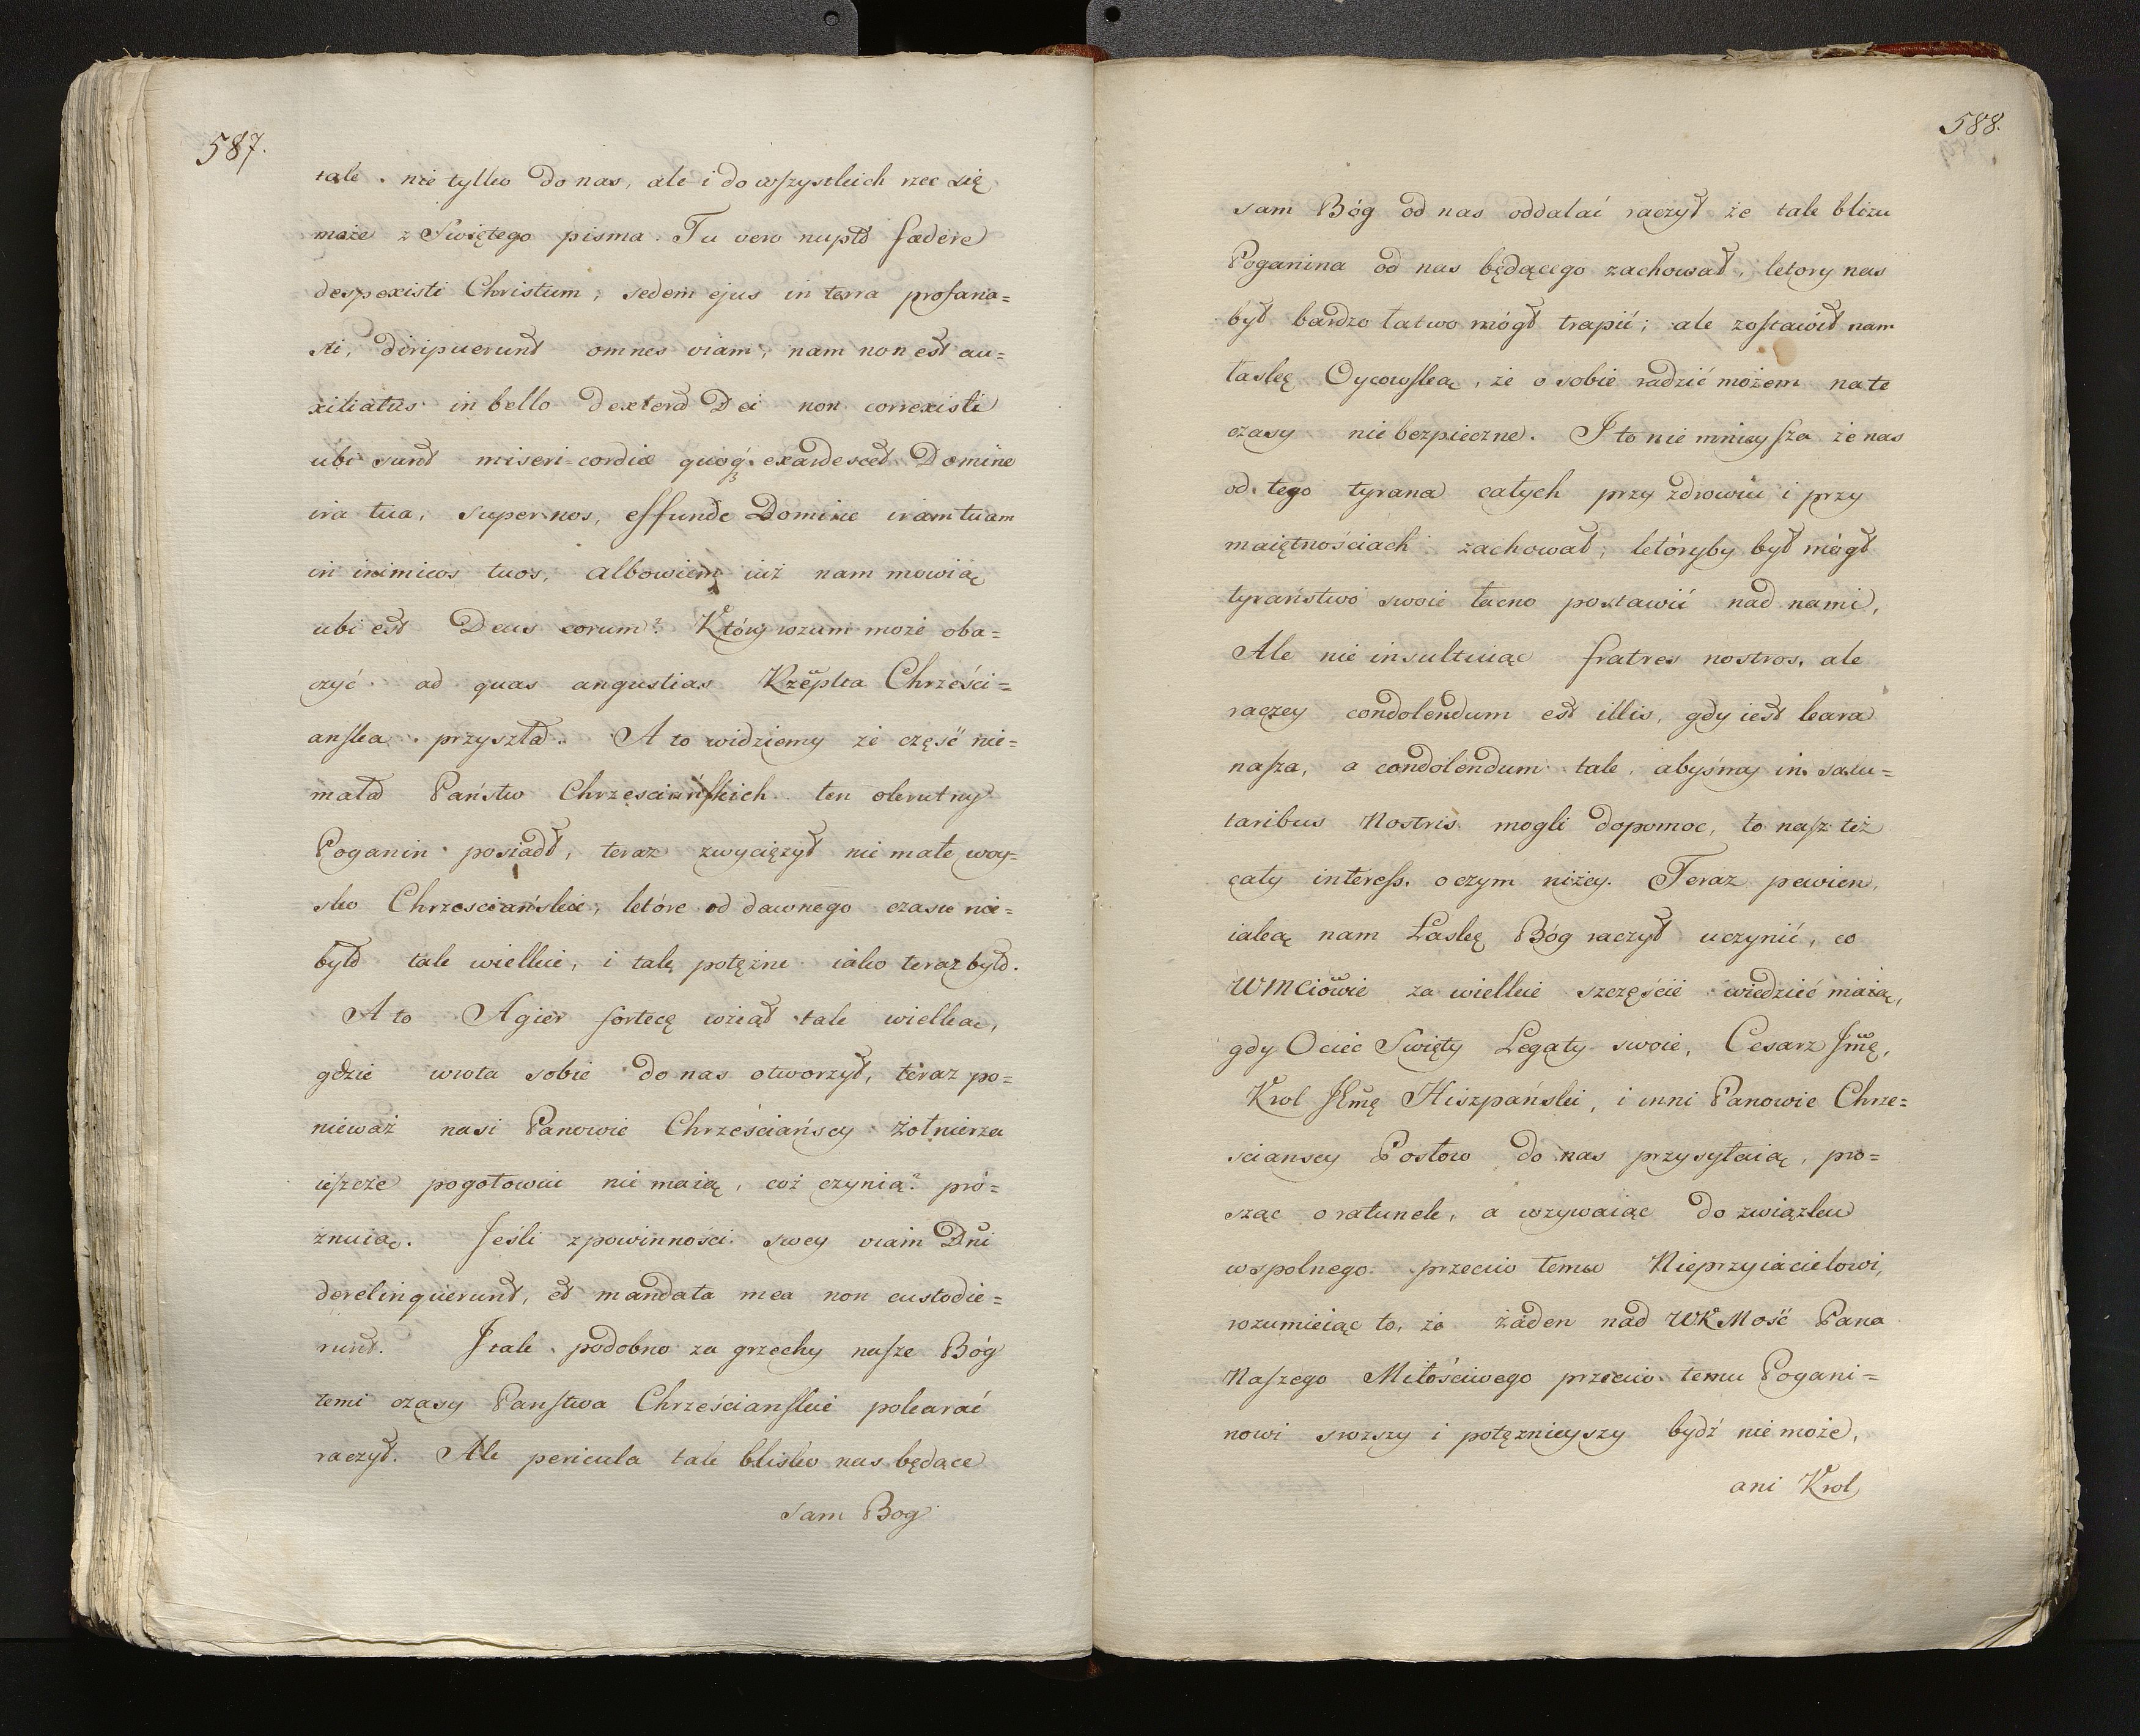 587.
tak. nie tylko do nas, ale i do wszystkich rzec się
może z Swiętego pisma. Tu vero nupta fædere
despexisti Christum, sedem ejus in terra profana=
sti, diripuerunt omnes viam, nam non est au=
xiliatus in bello dextera Dei non correxisti
ubi sunt miseri-cordiæ quoq3. exardescet Domine
ira tua, super nos, effunde Domine iram tuam
in inimicos tuos, albowiem iuż nam mowią
ubi est Deus eorum? Który rozum może oba=
czyć ad quas angustias Rzeplta Chrześci=
anska przyszła. A to widziemy że część nie=
mała Państw Chrześciańskich ten okrutny
Poganin posiadł, teraz zwyciężył nie małe woy=
sko Chrzesciańskie, które od dawnego czasu nie=
było tak wielkie, i tak potężne iako teraz było.
A to Agier fortecę wziął tak wielką,
gdzie wrota sobie do nas otworzył, teraz po=
nieważ nasi Panowie Chrześciańscy żołnierza
ieszcze pogotowiu nie maią, coż czynią? pró=
żnuią. Jeśli z powinności swey viam Dni
derelinquerunt, et mandata mea non custodie=
runt. I tak podobno za grzechy nasze Bóg
temi czasy Panstwa Chrześcianskie pokarać
raczył. Ale pericula tak blisko nas będące
sam Bog
588.
sam Bóg od nas oddalać raczył że tak blizu
Poganina od nas będącego zachował, ktory nas
był bardzo łatwo mógł trapić; ale zostawił nam
łaskę Oycowską, że o sobie radzić możem na te
czasy niebezpieczne. I to nie mnieysza że nas
od tego tyrana całych przy zdrowiu i przy
maiętnościach zachował, któryby był mógł
tyraństwo swoie łacno postawić nad nami,
Ale nie insultuiąc fratres nostros, ale
raczey condolendum est illis, gdy iest kara
nasza, a condolendum tak, abyśmy in salu=
taribus Nostris mogli dopomoc, to nasz też
cały interess. o czym niżey. Teraz pewien,
iaką nam Łaskę Bóg raczył uczynić, co
WMCiowie za wielkie szczęście wiedzieć maią,
gdy Ociec Swięty Legaty swoie, Cesarz Jmę,
Krol JKmę Hiszpański, i inni Panowie Chrze=
sciansey Posłow do nas przysyłaią, pro=
sząc o ratunek, a wzywaiąc do związku
wspolnego przeciw temu Nieprzyiacielowi,
rozumieiąc to, że żaden nad WKMość Pana
Naszego Miłościwego przeciw temu Pogani=
nowi srozszy i potężnieyszy bydź nie może,
ani Krol